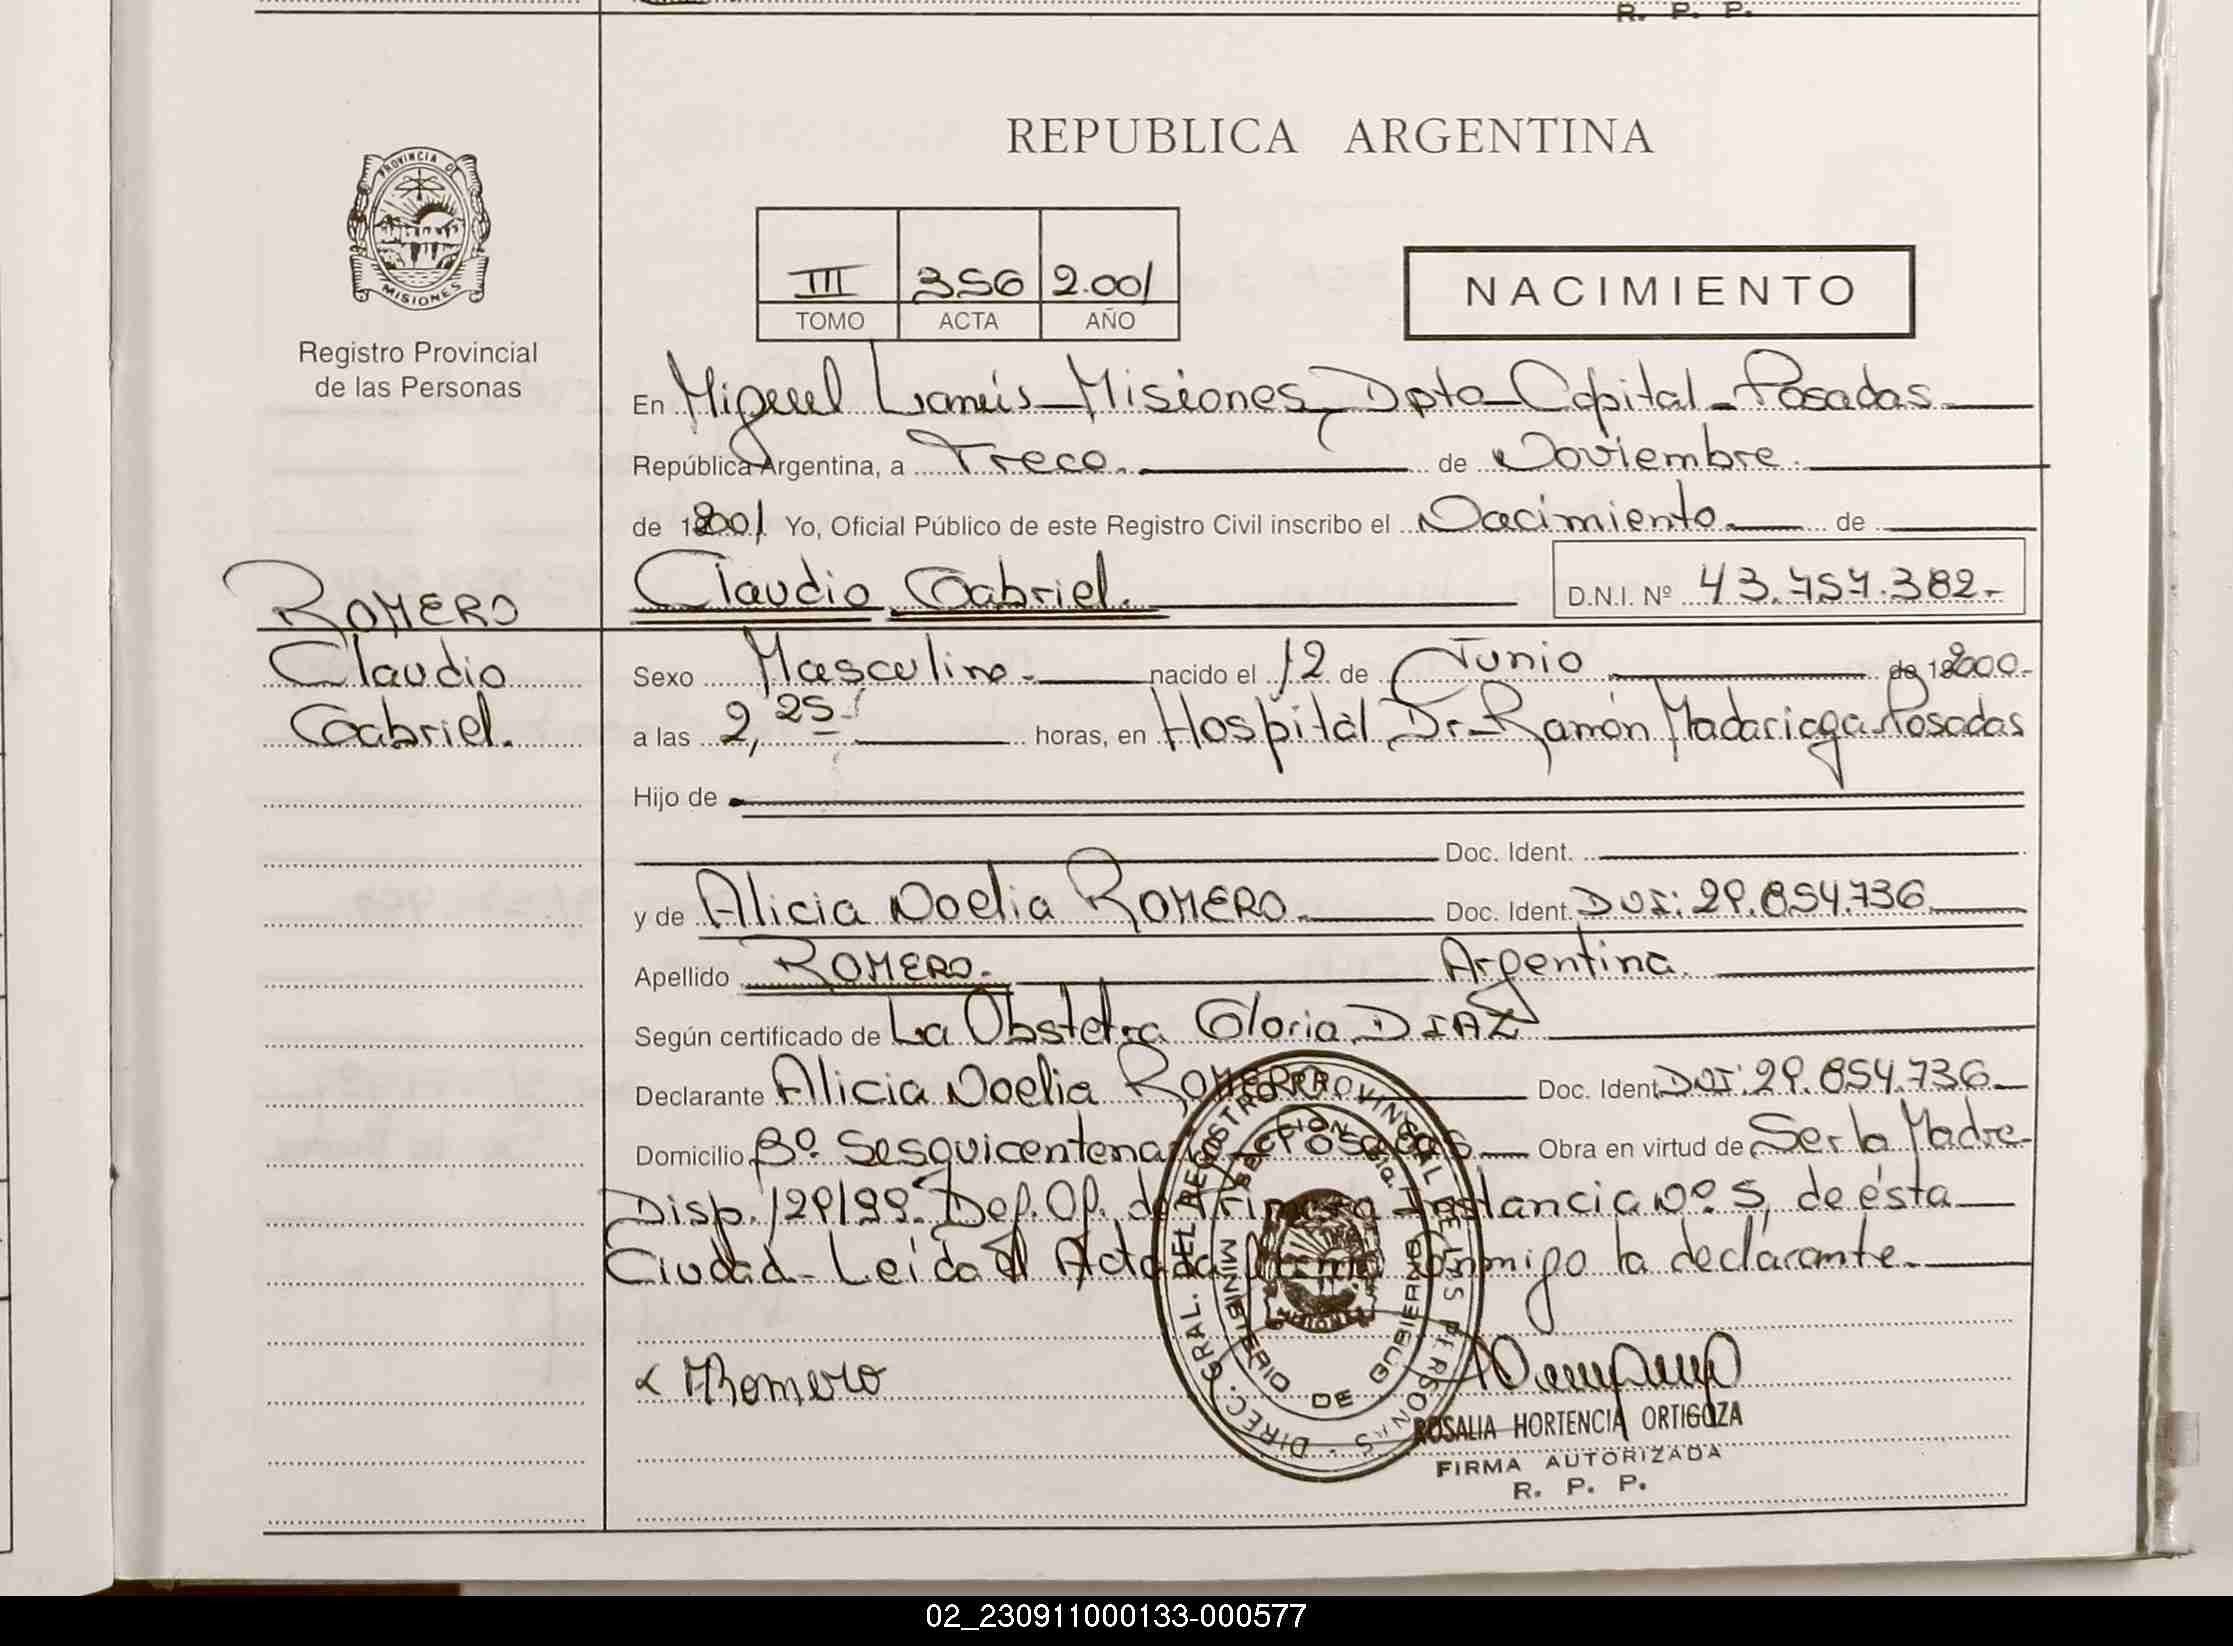 R. P. P.
REPUBLICA ARGENTINA
PROVINCIA DE
MISIONES
Registro Provincial
de las Personas
III 356 2.001
TOMO ACTA AÑO
NACIMIENTO
En Miguel Lanús - Misiones, Dpto - Capital - Posadas.
República Argentina, a Trece. de Noviembre.
de 2001 Yo, Oficial Público de este Registro Civil inscribo el Nacimiento de
Claudio Gabriel. D.N.I. Nº 43.757.382.-
ROMERO
Claudio
Gabriel.
Sexo Masculino. nacido el 12 de Junio de 2000.-
a las 2,25 horas, en Hospital Dr. Ramón Madariaga - Posadas
Hijo de
Doc. Ident.
y de Alicia Noelia ROMERO. Doc. Ident. DNI: 29.854.736
Apellido ROMERO. Argentina.
Según certificado de La Obstetra Gloria DIAZ
Declarante Alicia Noelia ROMERO Doc. Ident. DNI: 29.854.736
Domicilio Bº. Sesquicentenario - Posadas Obra en virtud de Ser la Madre-
Disp. 129/99. Def. Of. de Primera Instancia Nº. 5, de ésta
Ciudad - Leída el Acta la firma conmigo la declarante.
DIREC. GRAL. DEL REGISTRO PROVINCIAL DE LAS PERSONAS
MINISTERIO DE GOBIERNO
MISIONES
ARomero
ROSALIA HORTENCIA ORTIGOZA
FIRMA AUTORIZADA
R. P. P.
02_230911000133-000577